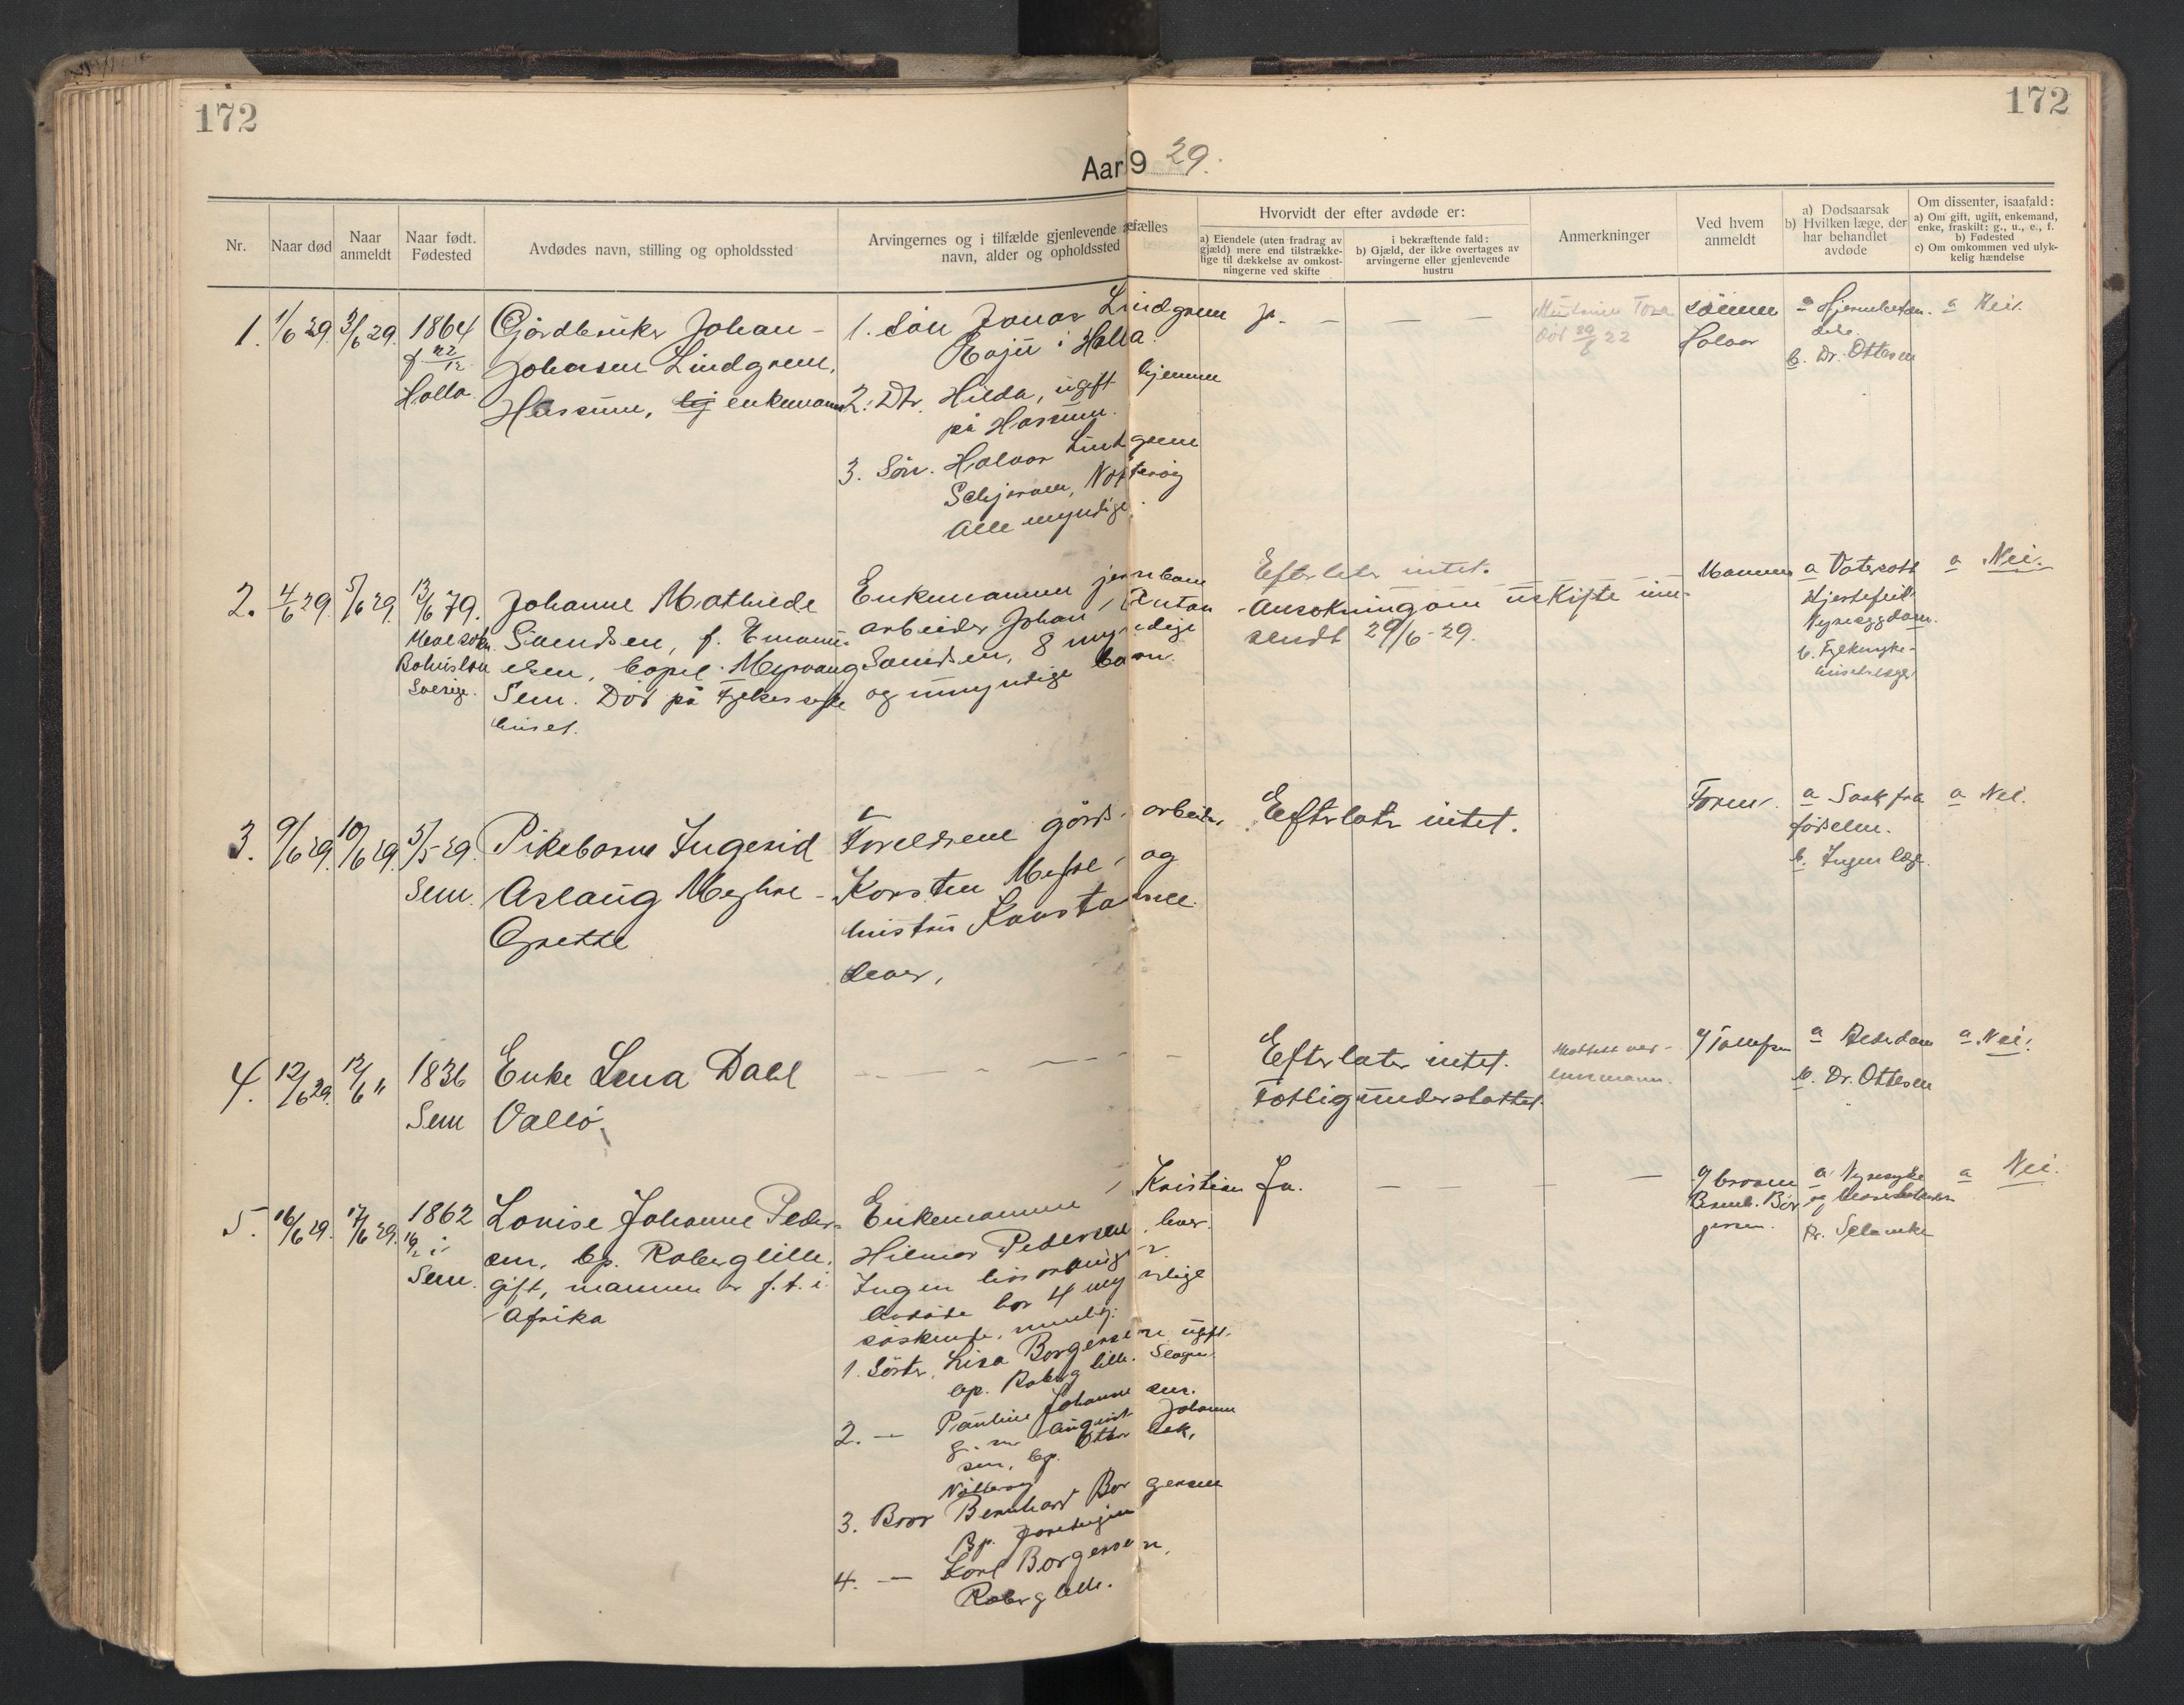 172
172
Aar 19 29.
Nr.
Naar død
Naar anmeldt
Naar født. Fødested
Avdødes navn, stilling og opholdssted
Arvingernes og i tilfælde gjenlevende ægtefælles navn, alder og opholdssted
Hvorvidt der efter avdøde er:
a) Eiendele (uten fradrag av gjæld) mere end tilstrække-lige til dækkelse av omkost-ningerne ved skifte
i bekræftende fald: b) Gjæld, der ikke overtages av arvingerne eller gjenlevende hustru
Anmerkninger
Ved hvem anmeldt
a) Dødsaarsak b) Hvilken læge, der har behandlet avdøde
Om dissenter, isaafald: a) Om gift, ugift, enkemand, enke, fraskilt: g., u., e., f. b) Fødested c) Om omkommen ved ulyk-kelig hændelse
1. 1/6 29. 3/6 29. 1864
f. 22/12
Holla
Gårdbruker Johan
Johansen Lindgren,
Hassum, enkemann
1. Sön Jonas Lindgren
i Holla.
2. Dtr. Hilda, ugift hjemme
på Hassum.
3. Sön. Halvor Lindgren
Nötteröy
Alle myndige.
Ja. — — —
Död 29/8 22
sönnen
Halvor
a
b. Dr. Ottesen
a Nei.
2. 4/6 29. 5/6 29. 13/6 79.
Sverige.
Johanne Mathilde
Samdsen, f. Emanu-
elsen, bopel. Myrvang
Sem. Död på Fylkessyke
huset.
Enkemannen jernbane
arbeider Johan Anton
Samdsen, 8 myndige
og umyndige barn.
Efterlater intet.
Ansökning om uskifte inn-
sendt 29/6-29.
Mannen
a Vatersott
Hjertefeil
Nyreeggdom.
b. Fylkesyke-
huset
a Nei.
3. 9/6 29. 10/6 29. 5/5 29.
Sem.
Pikebarn Ingerid
Aslaug Myhre
Grette
Foreldrene gårds-arbeider
Korsten Myhre og
hustru Konstanse
lever,
Efterlater intet.
Foren.
a Svak fra
fødselen.
b. Ingen læge.
a Nei.
4. 12/6 29. 12/6 " 1836
Sem
Enke Lena Dahl
Vallö.
— — — — — —
Efterlater intet.
Fattigunderstöttet.
a
b. Dr. Ottesen
a Nei.
5. 16/6 29. 17/6 29. 1862
i
Sem.
Lovise Johanne Peder-
sen, bp. Roberg lille,
gift, mannen er f.t. i
Afrika
Enkemannen Kristian
Hilmar Pedersen, lever.
Ingen livsarvinger.
Avdöde har 4 myndige
söskende, nemlig:
1. Söster, Lisa Borgersen ugift.
bp. Roberg lille. Slagen.
2. — Pauline Johannesen.
August Johanne
sen, bp.
Nötteröy
3. Bror Bernhard Borgersen
Bp.
4. — Karl Borgersen,
Roberg lille.
Ja. — — — —
broren
Bernh. Bor
gersen.
a Nyresyke
og
Dr.
a Nei.